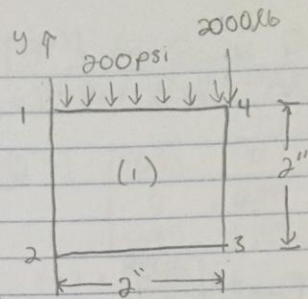 2000lb
y
200psi
1
4
(1)
2"
2
3
2"